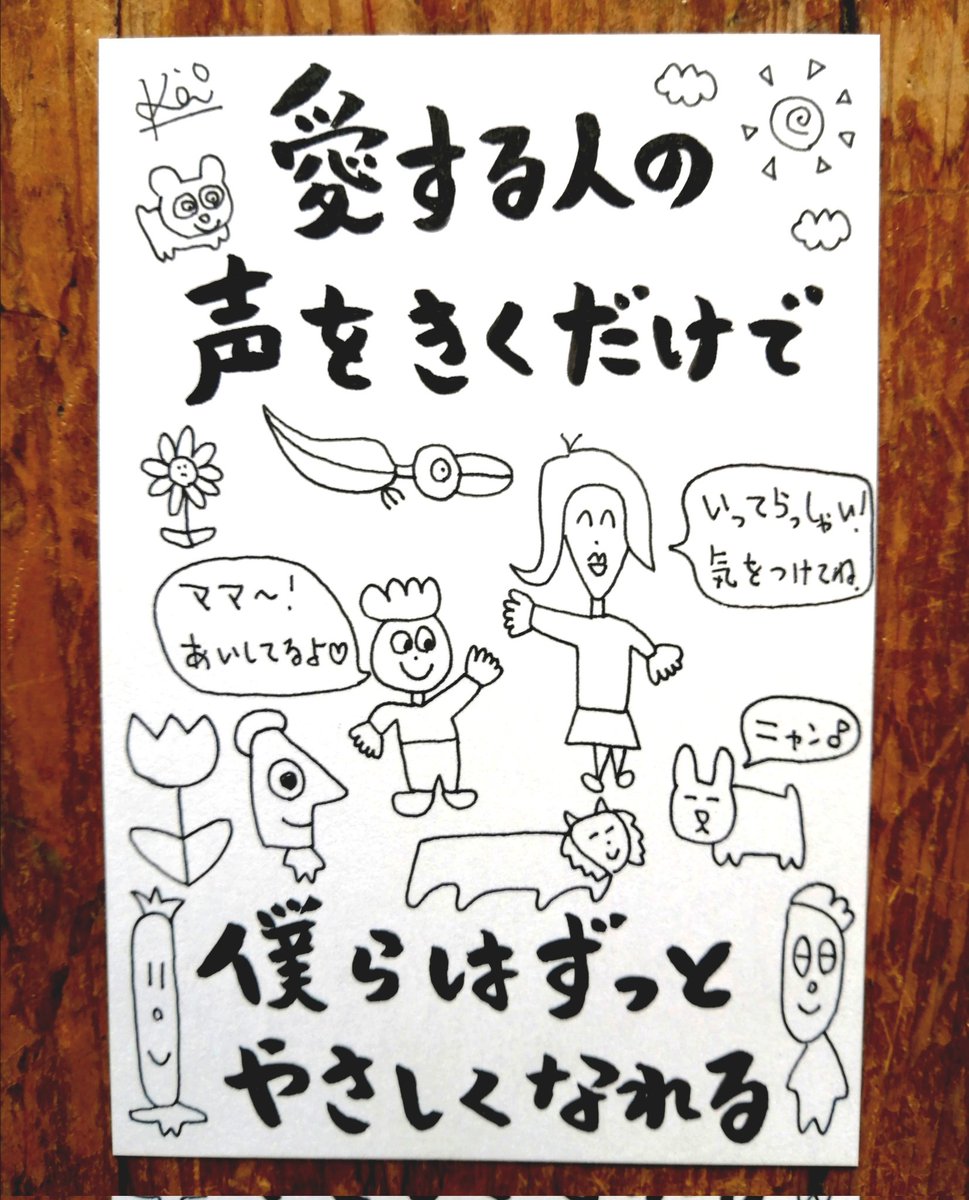 Kei
愛する人の
声をきくだけで
いってらっしゃい!
気をつけてね
ママ〜!
あいしてるよ♡
ニャン♪
僕らはずっと
やさしくなれる